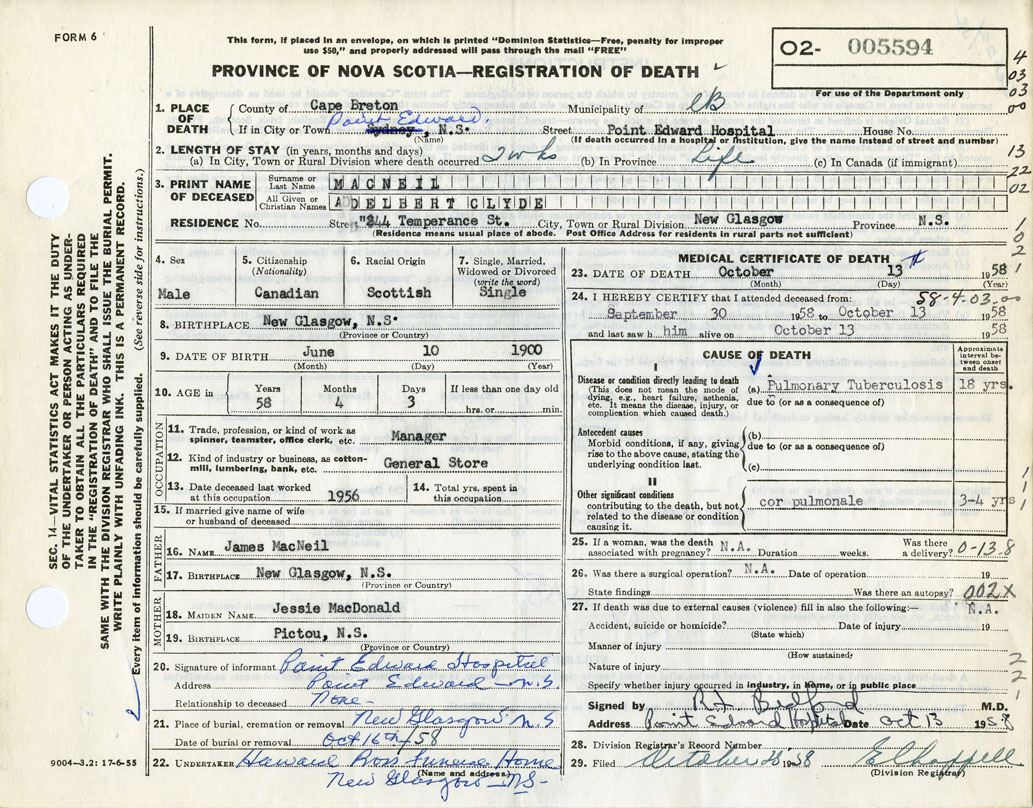 FORM 6
This form, if placed in an envelope, on which is printed "Dominion Statistics—Free, penalty for improper
use $50," and properly addressed will pass through the mail "FREE"
O2- 005594
For use of the Department only
PROVINCE OF NOVA SCOTIA—REGISTRATION OF DEATH
4
03
03
00
1. PLACE OF DEATH
County of Cape Breton Municipality of CB
Point Edward.
If in City or Town Sydney, N.S. Street Point Edward Hospital House No.
(Name) (If death occurred in a hospital or institution, give the name instead of street and number)
2. LENGTH OF STAY (in years, months and days)
(a) In City, Town or Rural Division where death occurred 2 wks (b) In Province Life (c) In Canada (if immigrant)
13
22
02
3. PRINT NAME OF DECEASED
Surname or Last Name MACNEIL
All Given or Christian Names ADELBERT CLYDE
RESIDENCE No. Street "244 Temperance St. City, Town or Rural Division New Glasgow Province N.S.
(Residence means usual place of abode. Post Office Address for residents in rural parts not sufficient)
1
0
2
1
4. Sex
Male
5. Citizenship (Nationality)
Canadian
6. Racial Origin
Scottish
7. Single, Married, Widowed or Divorced (write the word)
Single
8. BIRTHPLACE New Glasgow, N.S.
(Province or Country)
9. DATE OF BIRTH June 10 1900
(Month) (Day) (Year)
10. AGE in
Years 58
Months 4
Days 3
If less than one day old
hrs. or min.
OCCUPATION
11. Trade, profession, or kind of work as spinner, teamster, office clerk, etc. Manager
12. Kind of industry or business, as cotton-mill, lumbering, bank, etc. General Store
13. Date deceased last worked at this occupation 1956
14. Total yrs. spent in this occupation
15. If married give name of wife or husband of deceased
FATHER
16. NAME James MacNeil
17. BIRTHPLACE New Glasgow, N.S.
(Province or Country)
MOTHER
18. MAIDEN NAME Jessie MacDonald
19. BIRTHPLACE Pictou, N.S.
(Province or Country)
20. Signature of informant Point Edward Hospital
Address Point Edward N.S.
Relationship to deceased None
21. Place of burial, cremation or removal New Glasgow N.S
Date of burial or removal Oct 16th/58
22. UNDERTAKER Haward Ross Funeral Home
(Name and address)
New Glasgow NS
MEDICAL CERTIFICATE OF DEATH
23. DATE OF DEATH October 13 th 1958
(Month) (Day) (Year)
58-4-03-00
24. I HEREBY CERTIFY that I attended deceased from:
September 30 1958 to October 13 1958
and last saw h him alive on October 13 1958
CAUSE OF DEATH
Approximate interval between onset and death
I
Disease or condition directly leading to death
(This does not mean the mode of dying, e.g., heart failure, asthenia, etc. It means the disease, injury, or complication which caused death.)
(a) Pulmonary Tuberculosis 18 yrs.
due to (or as a consequence of)
Antecedent causes
Morbid conditions, if any, giving rise to the above cause, stating the underlying condition last.
(b)
due to (or as a consequence of)
(c)
II
Other significant conditions
contributing to the death, but not related to the disease or condition causing it.
cor pulmonale 3-4 yrs
1
1
1
25. If a woman, was the death associated with pregnancy? N.A. Duration weeks. Was there a delivery? 0-13-8
26. Was there a surgical operation? N.A. Date of operation 19
State findings Was there an autopsy? 002X
27. If death was due to external causes (violence) fill in also the following:— N.A.
Accident, suicide or homicide? Date of injury 19
(State which)
Manner of injury
(How sustained)
Nature of injury
Specify whether injury occurred in industry, in home, or in public place
2
2
1
Signed by R.F. Bedford M.D.
Address Point Edward Hospital Date Oct 13 1958
28. Division Registrar's Record Number
29. Filed October 28 1958 E Chappell
(Division Registrar)
SEC. 14—VITAL STATISTICS ACT MAKES IT THE DUTY
OF THE UNDERTAKER OR PERSON ACTING AS UNDER-
TAKER TO OBTAIN ALL THE PARTICULARS REQUIRED
IN THE "REGISTRATION OF DEATH" AND TO FILE THE
SAME WITH THE DIVISION REGISTRAR WHO SHALL ISSUE THE BURIAL PERMIT.
WRITE PLAINLY WITH UNFADING INK. THIS IS A PERMANENT RECORD.
Every item of information should be carefully supplied. (See reverse side for instructions.)
9004—3.2: 17-6-55